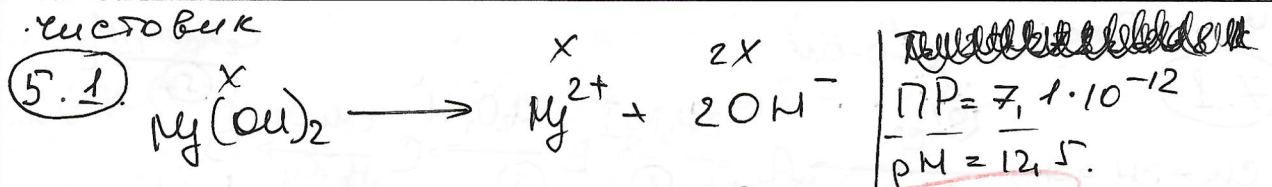 чистовик
5.1.
x x 2x
Mg(OH)₂ ⟶ Mg²⁺ + 2OH⁻
ПР = 7,1·10⁻¹²
pH = 12,5.